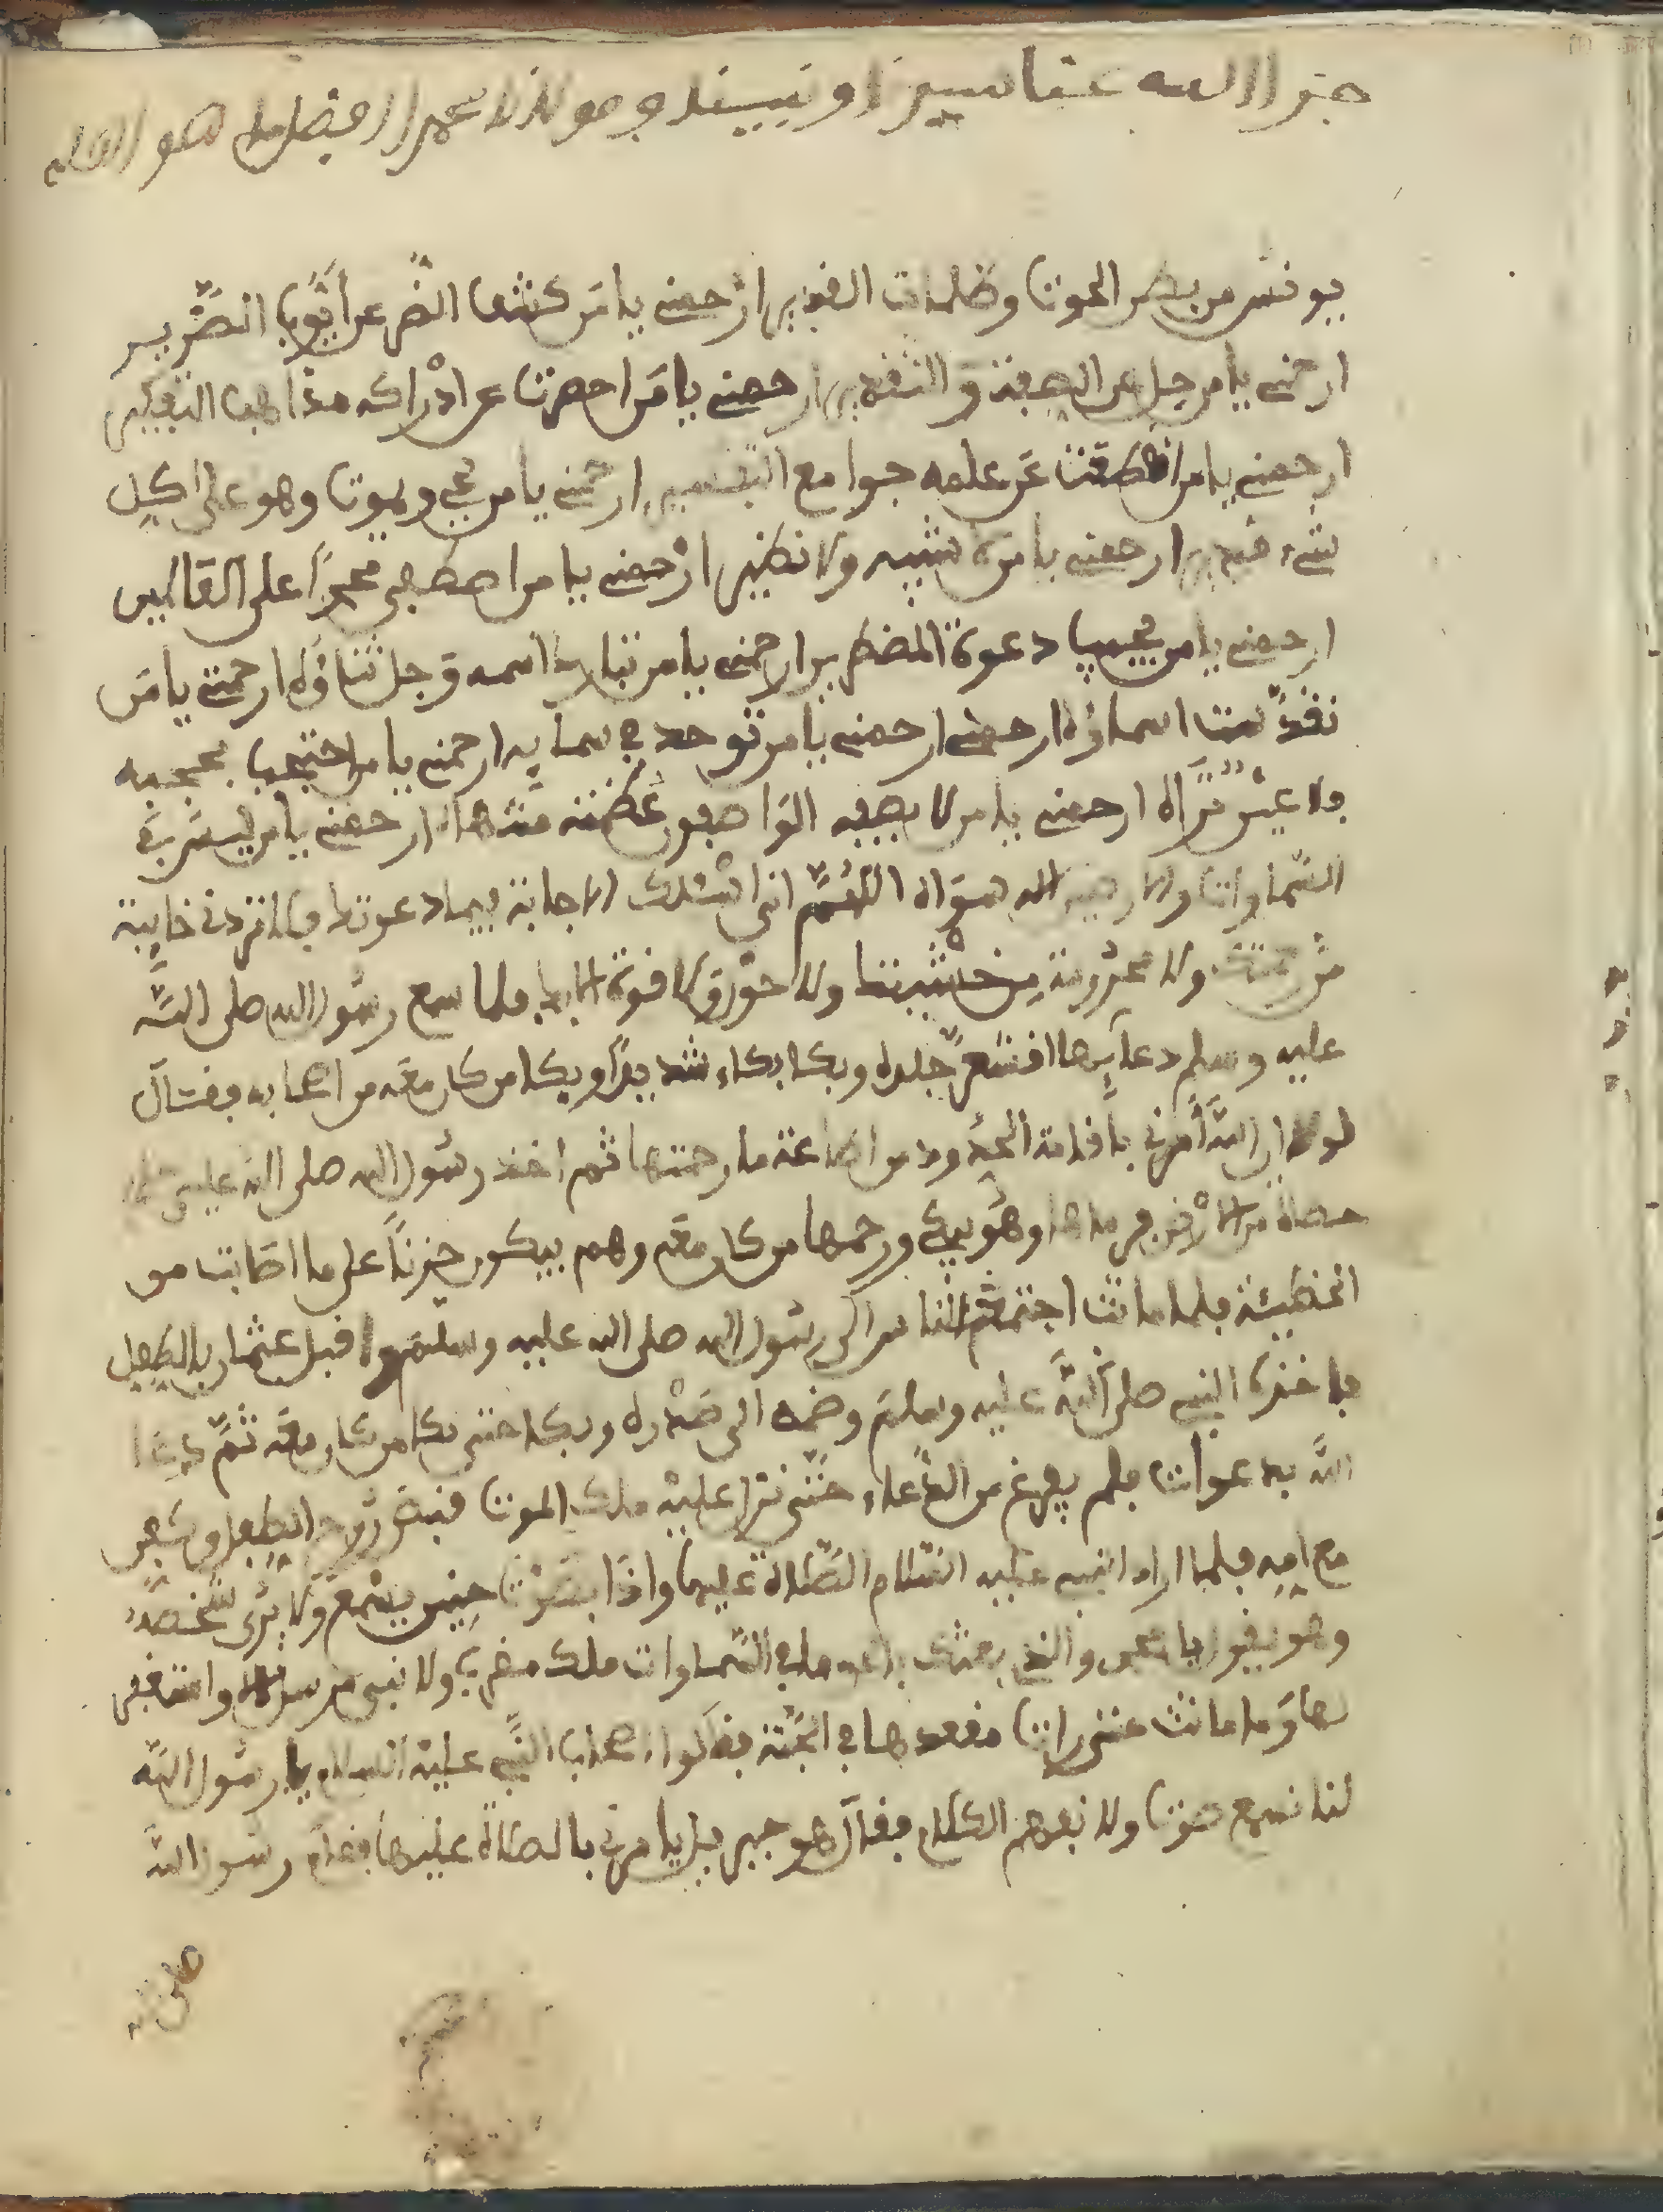 جزا الله عنا سيدنا ونبينا ومولانا محمدا افضل ما هو اهله
يونس من بطن الحوت وظلمات الغدير ارحمني يا من كشف الضر عن أيوب الضرير
ارحمني يا من جل عن الصفة والتقدير ارحمني يا من احصرت عن ادراكه مذاهب التفكير
ارحمني يا من انقطعت عن علمه جوامع التفسير ارحمني يا من يحي ويموت وهو على كل
شيء قدير ارحمني يا من لا شبيه ولا نظير ارحمني يا من اصطفى محمدا على العالمين
ارحمني يا من يجيب دعوة المضطرين ارحمني يا من تبارك اسمه وجل ثناؤه ارحمني يا من
تقدست اسماؤه ارحمني ارحمني يا من توحد في سمايه ارحمني يا من احتجب بحجبه
فلا عين تراه ارحمني يا من لا يصفه الواصفون عظمة منتهاه ارحمني يا من ليس في
السماوات والارضين اله سواه اللهم اني اسئلك الاجابة فيما دعوتك فلا تردني خايبة
من رحمتك ولا محرومة من خشيتك ولا حول ولا قوة الا بك فلما سمع رسول الله صلى الله
عليه وسلم دعآيها اقشعر جلده وبكا بكاء شديدا وبكا من كان معه من اصحابه فقال
لولا ان الله أمرني باقامة الحدود من اطاعة ما رجمتها ثم اخذ رسول الله صلى الله عليه وسلم
حصاة من الارض فرماها وهو يبكي ورجمها من كان معه وهم يبكون حزنا على ما اصابت من
الخطيئة فلما ماتت اجتمع الناس الى رسول الله صلى الله عليه وسلم واقبل عثمان بالطفل
فاخذه النبي صلى الله عليه وسلم وضمه الى صدره وبكا حتى بكا من كان معه ثم دعا
الله بدعوات فلم يفرغ من الدعاء حتى نزل عليه ملك الموت فقبض روح الطفل ودفن
مع امه فلما اراد النبي عليه السلام الصلاة عليها واذا بصوت حنين يسمع ولا يرى شخصه
وهو يقول يا محمد والذي بعثك بالحق ما في السماوات ملك مقرب ولا نبي مرسل الا واستغفر
لها وما ماتت حتى رات مقعدها في الجنة فقالوا اصحاب النبي عليه السلام يا رسول الله
لنا نسمع صوتا ولا نفهم الكلام فقال هو جبريل يامرني بالصلاة عليها فقام رسول الله
صلى الله